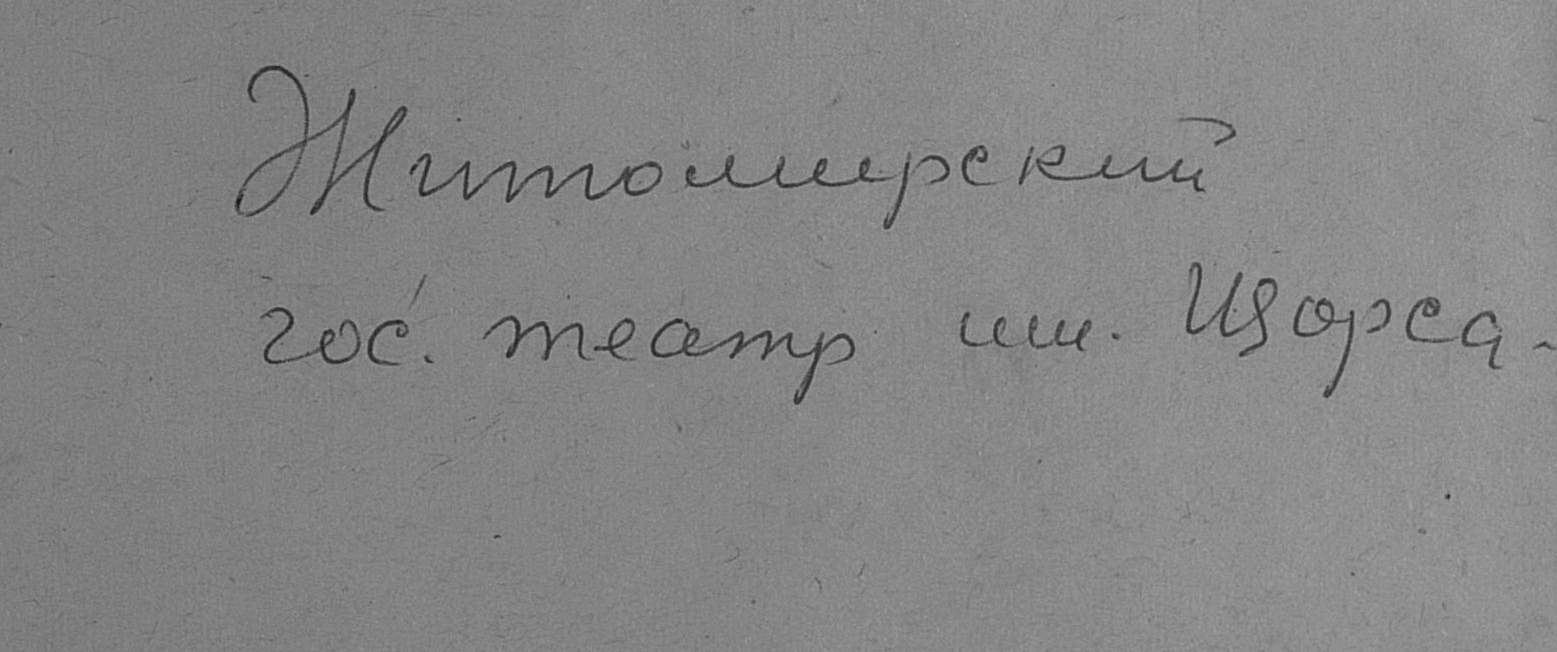 Житомирский
гос. театр им. Щорса.